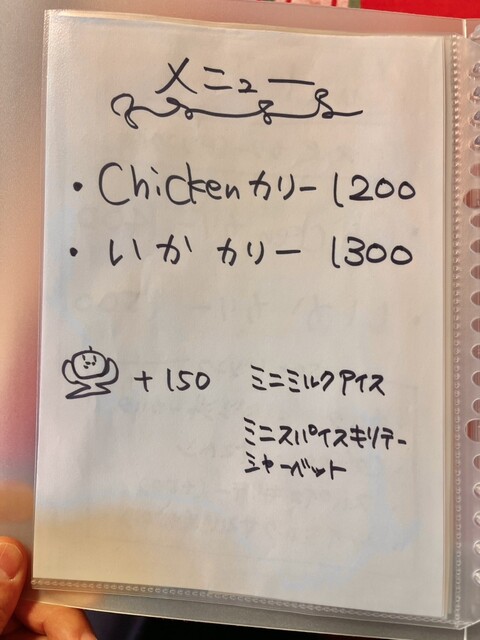 メニュー
・Chickenカリー 1200
・いか カリー 1300
+150 ミニミルクアイス
ミニスパイスキリテー
シャーベット